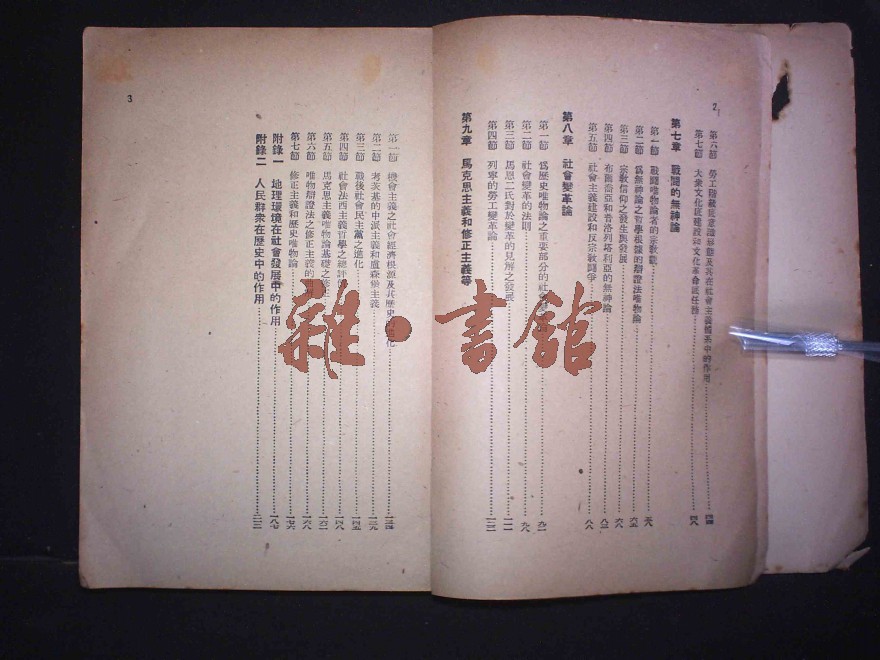 2
第六節 勞工階級底意識形態及其在社會主義體系中的作用
第七節 大衆文化底建設和文化革命底任務 四八
第七章 戰鬪的無神論
第一節 戰鬪唯物論者的宗教觀 五八
第二節 爲無神論之哲學根據的辯證法唯物論 六五
第三節 宗教信仰之發生與發展 六八
第四節 布爾喬亞和普洛列塔利亞的無神論 八三
第五節 社會主義建設和反宗教鬪爭 八八
第八章 社會變革論
第一節 爲歷史唯物論之重要部分的社會 九二
第二節 社會變革的法則 九八
第三節 馬恩二氏對於變革的見解之發展 一一一
第四節 列寧的勞工變革論 一二二
第九章 馬克思主義和修正主義等
3
第一節 機會主義之社會經濟根源及其歷史 化 一三四
第二節 考茨基的中派主義和盧森堡主義 一三九
第三節 戰後社會民主黨之進化 一四五
第四節 社會法西主義哲學之總評 一四八
第五節 馬克思主義唯物論基礎之修正 一六二
第六節 唯物辯證法之修正主義的 一六八
第七節 修正主義和歷史唯物論 一七六
附錄一 地理環境在社會發展中的作用 一八七
附錄二 人民群衆在歷史中的作用 二三二
雜·書館